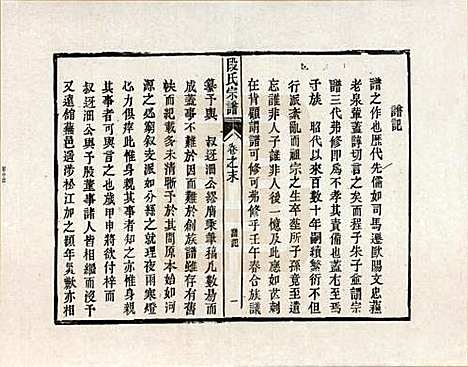 譜記
譜之作也歷代先儒如司馬遷歐陽文忠蘇
老泉輩蓋諄切言之矣而程子朱子僉謂宗
譜三代弗修卽等不孝其責備也蓋於
子族 昭代以來百數十年嗣續繁衍不但
行派紊亂而祖宗之生卒塋所子孫竟至
忘諱非人子諱非人後一憶及此應如芒刺
在背顧謂譜可弗修乎壬午春合族議
段氏宗譜
卷之末
譜記
一
纂予與 叔廷洄公繆廣秉筆稿凡數易而
成蓋事不難于創而難于因譜雖存有舊
帙而載多未清晰予於其間原本始如河
源之必窮敘支派如分緒之就理夜雨寒燈
心力俱瘁此惟身親其事者知之亦惟身親
其事者可與言之也歲甲申將欲付梓
叔廷洄公與予殷董事諸人皆相繼而沒予
又遠館蕪邑遊涉松江加之頻年炱歉亦